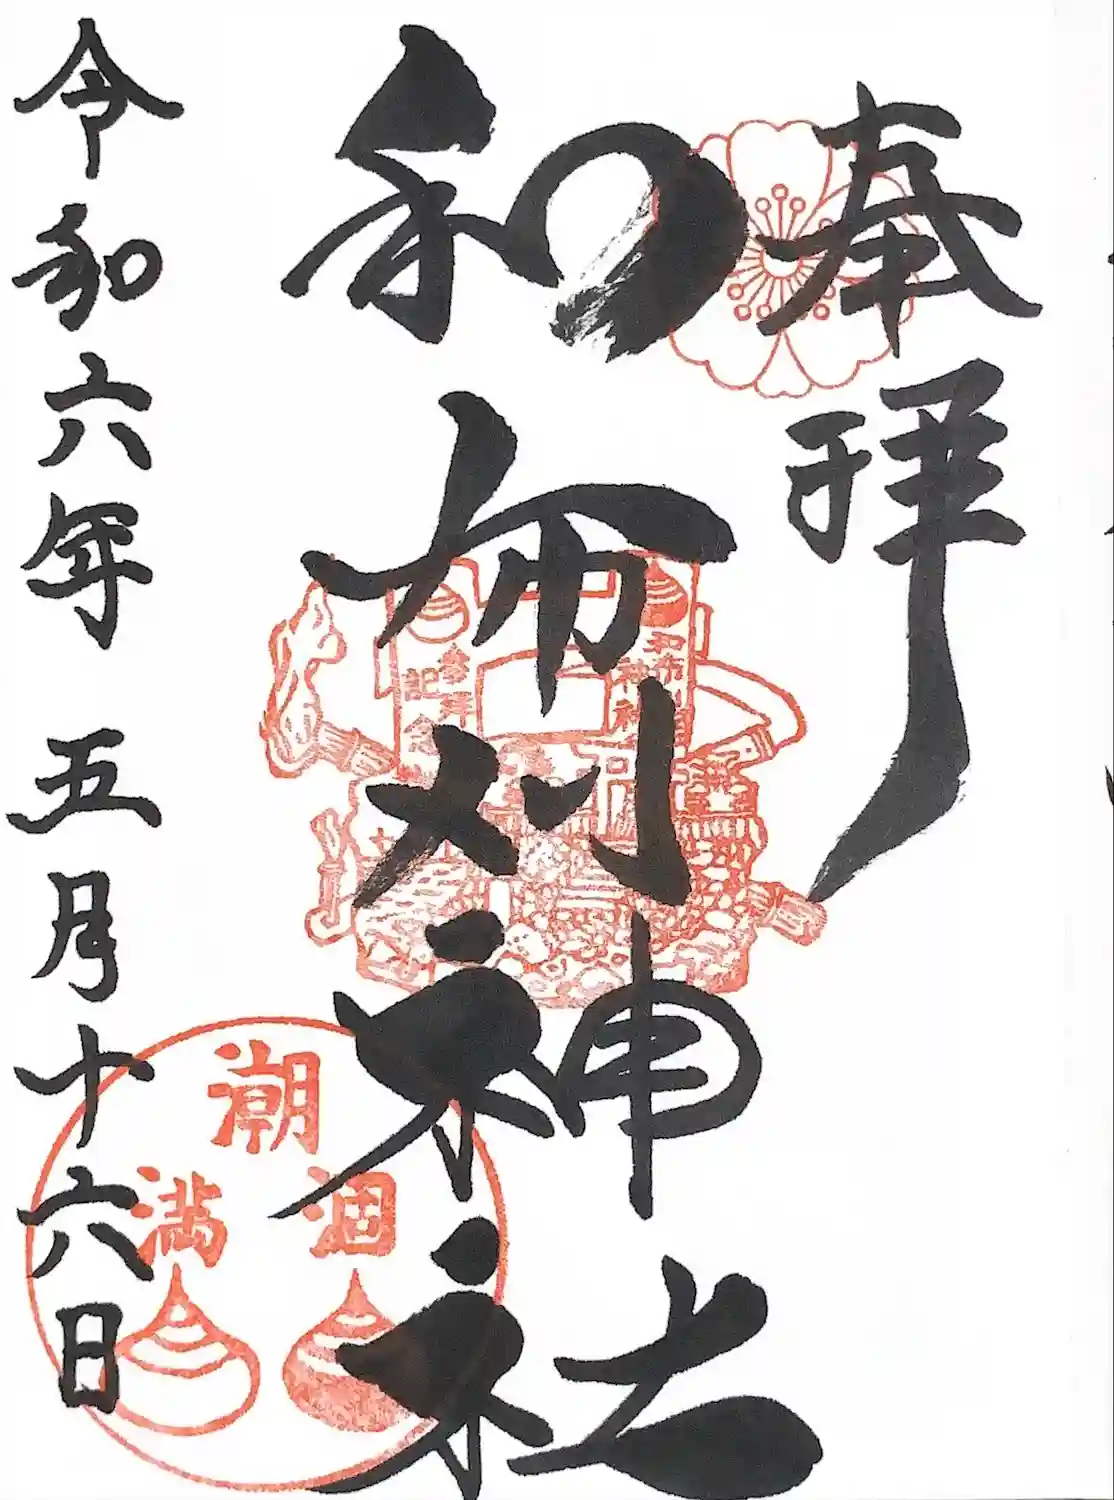 奉拝
和布刈神社
和布刈
神社
参拝
記念
潮
涸
満
令和六年 五月十六日